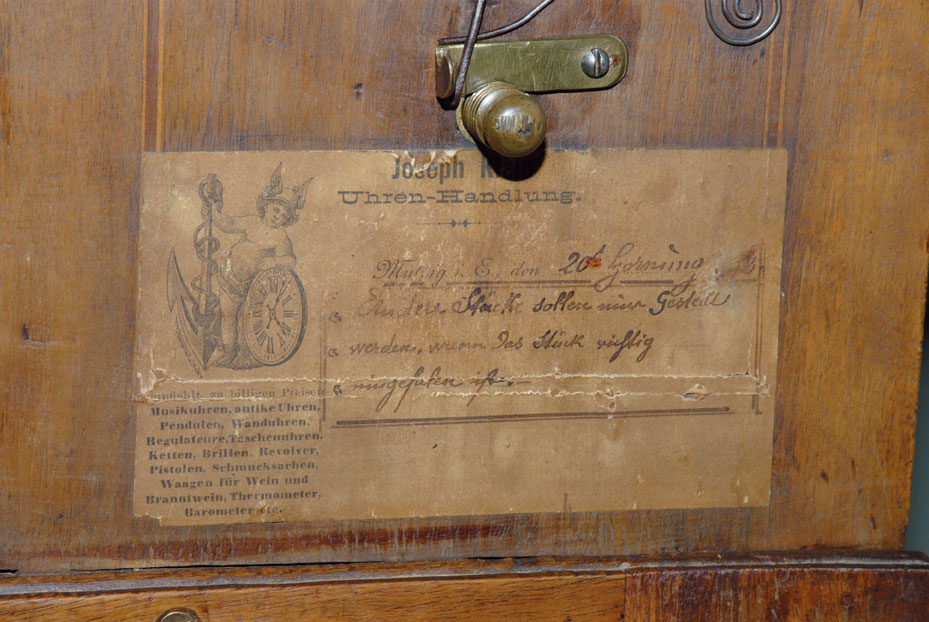 Joseph
Uhren-Handlung.
Mutzig i. E., den 20t Hornung
" Andere Stücke sollen nur Gestellt
" werden, wenn das Stück richtig
" eingefalen ist.—
empfiehlt zu billigen Preisen
Musikuhren, antike Uhren,
Pendulen, Wanduhren,
Regulateure, Taschenuhren,
Ketten, Brillen, Revolver,
Pistolen, Schmucksachen,
Waagen für Wein und
Branntwein, Thermometer,
Barometer etc.